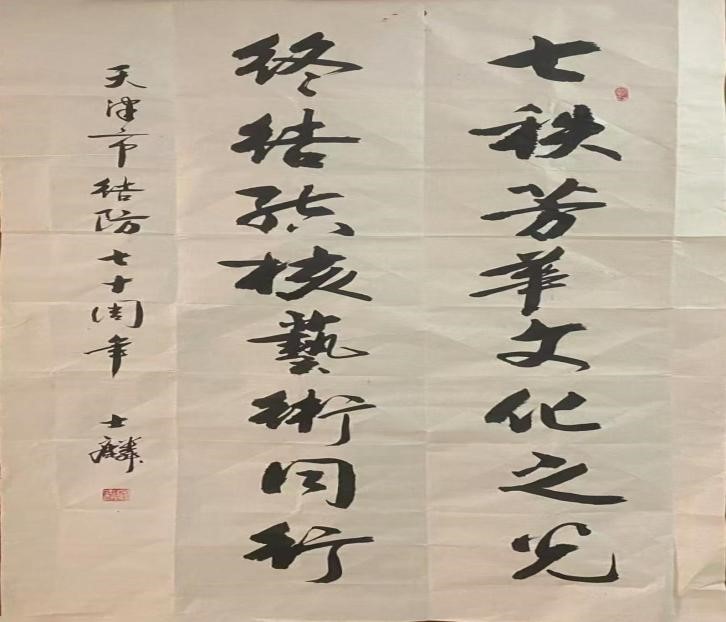 七秩芳華文化之光
终结结核藝術同行
天津市结防七十周年 士麟